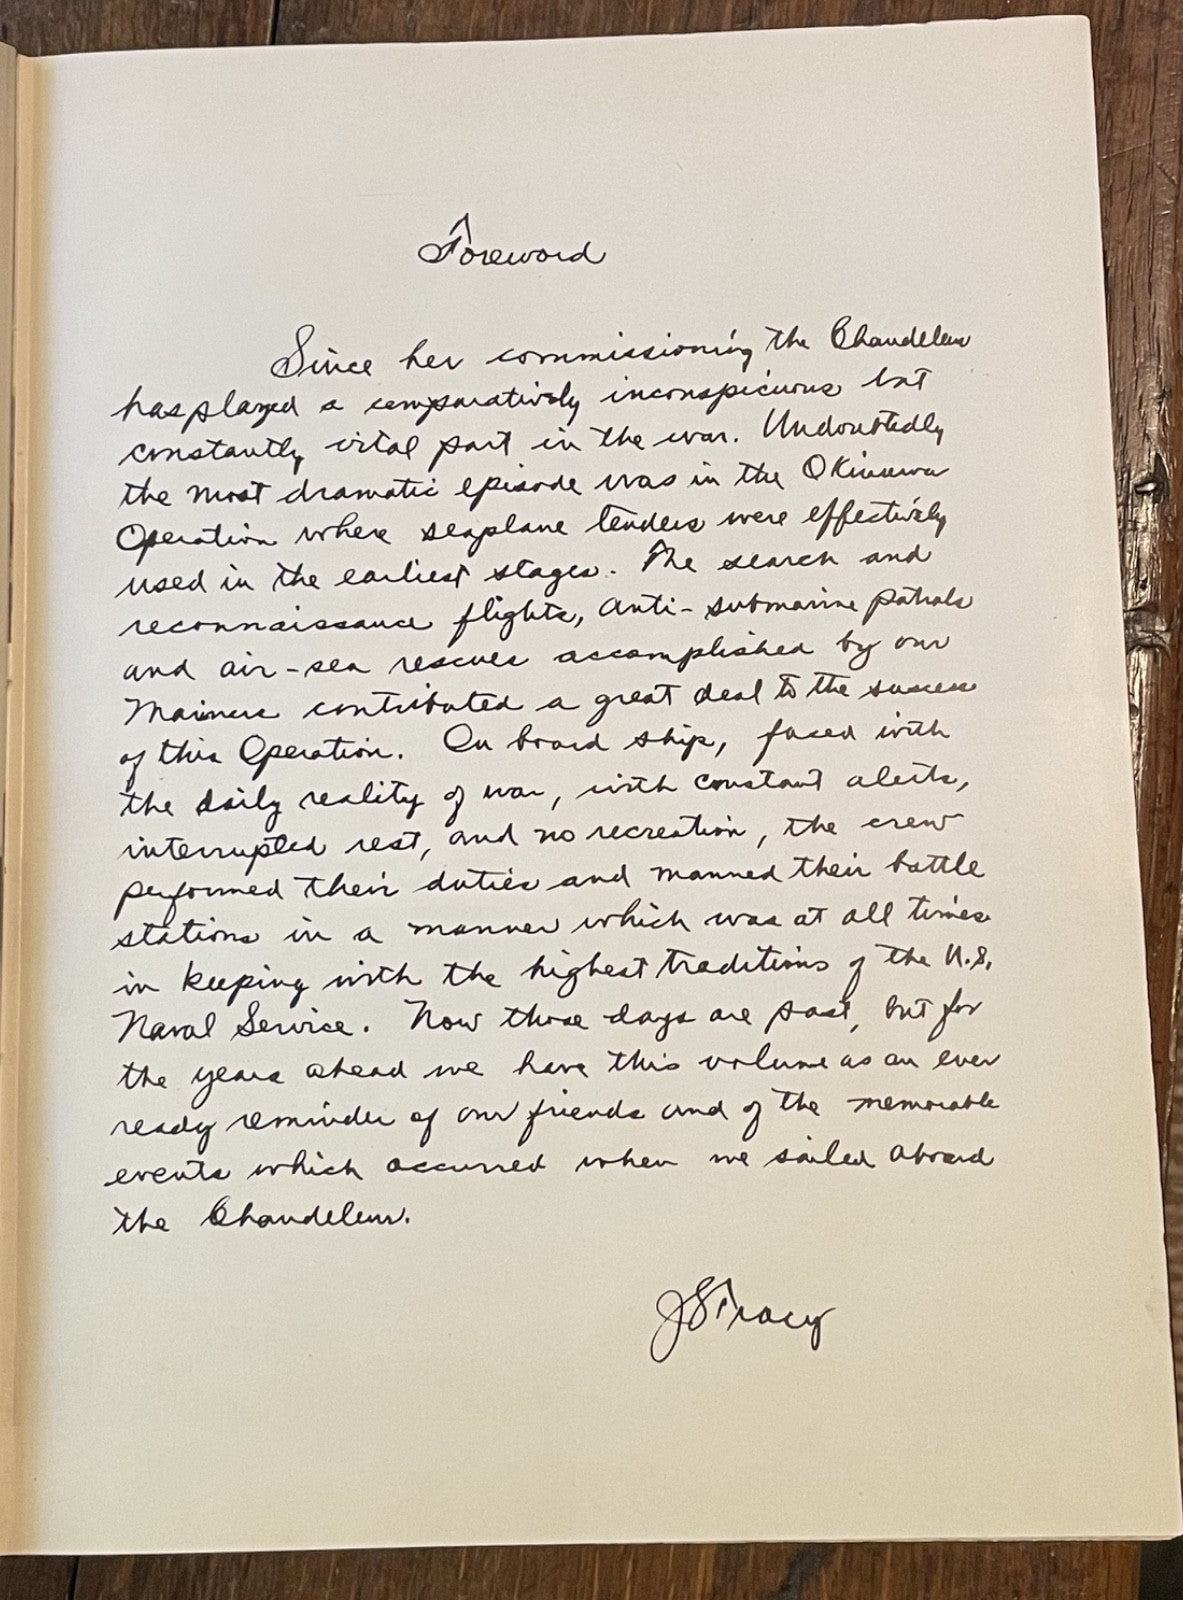 Foreword
Since her commissioning the Chandeleur
has played a comparatively inconspicuous but
constantly vital part in the war. Undoubtedly
the most dramatic episode was in the Okinawa
Operation where seaplane tenders were effectively
used in the earliest stages. The search and
reconnaissance flights, anti-submarine patrols
and air-sea rescues accomplished by our
Mariners contributed a great deal to the success
of this Operation. On board ship, faced with
the daily reality of war, with constant alerts,
interrupted rest, and no recreation, the crew
performed their duties and manned their battle
stations in a manner which was at all times
in keeping with the highest traditions of the U.S.
Naval Service. Now those days are past, but for
the years ahead we have this volume as an ever
ready reminder of our friends and of the memorable
events which occurred when we sailed aboard
the Chandeleur.
JSTracy